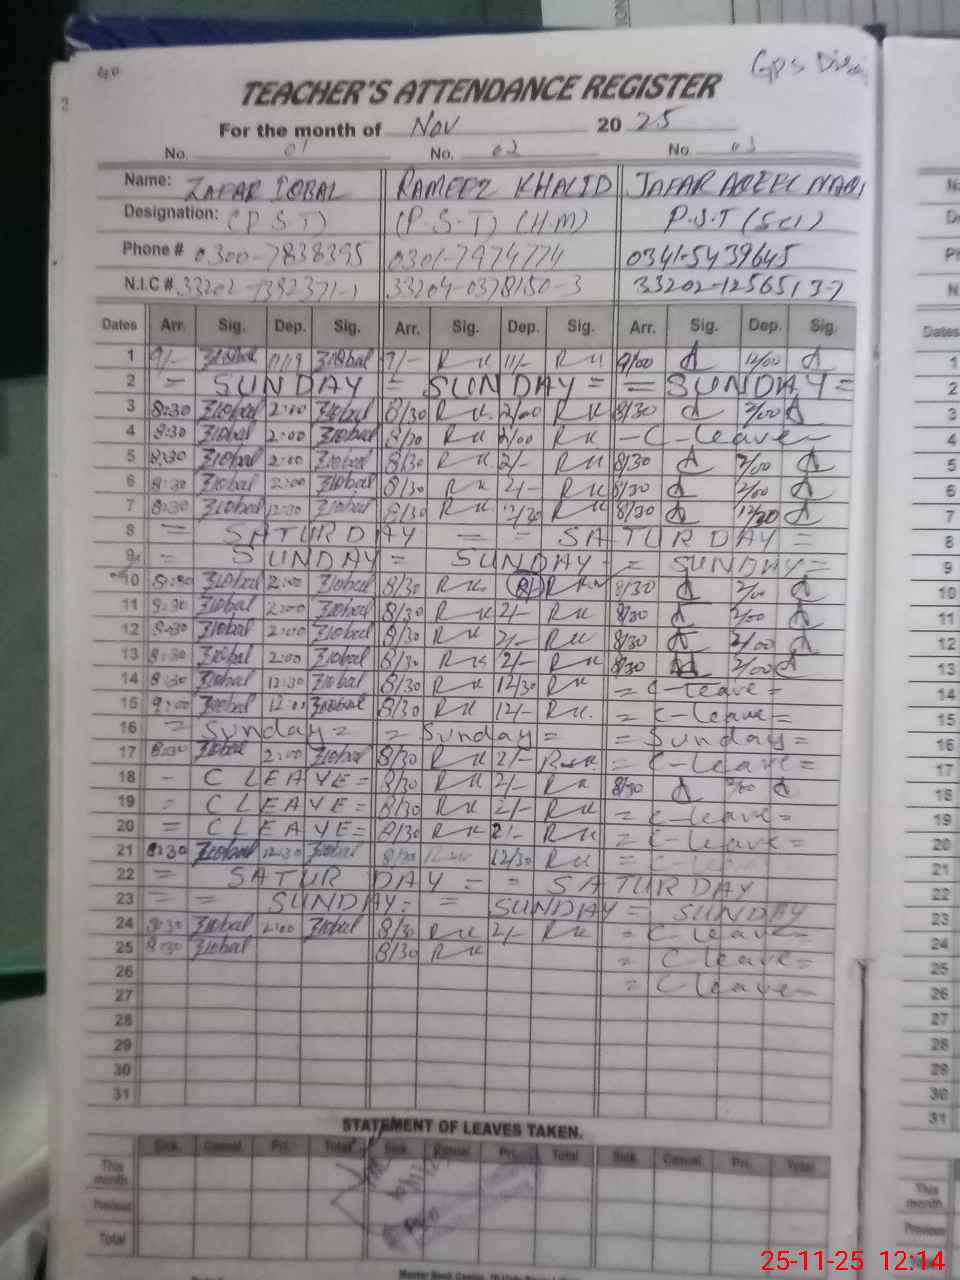 GPS
TEACHER'S ATTENDANCE REGISTER
For the month of Nov 2025
No. 01 No. 02 No. 03
Name: ZAFAR IQBAL RAMEEZ KHALID JAFAR AQEEL NABI
Designation: (P.S.T) (P.S.T) (H.M) P.S.T (Sci)
Phone # 0300-7838395 0301-7974774 0341-5439645
N.I.C # 33202-1392371-1 33204-0378150-3 33202-1256513-7
Dates Arr. Sig. Dep. Sig. Arr. Sig. Dep. Sig. Arr. Sig. Dep. Sig.
1 9/- ZIqbal ZIqbal 9/- RK 11/- RK 9/00 A 12/00 A
2 = SUNDAY = SUNDAY = = SUNDAY =
3 8:30 ZIqbal 2:00 ZIqbal 8/30 RK 2/00 RK 8/30 A 2/00 A
4 8:30 ZIqbal 2:00 ZIqbal 8/30 RK 2/00 RK - C-leave -
5 8:30 ZIqbal 2:00 ZIqbal 8/30 RK 2/- RK 8/30 A 2/00 A
6 8:30 ZIqbal 2:00 ZIqbal 8/30 RK 2/- RK 8/30 A 2/00 A
7 8:30 ZIqbal 12:30 ZIqbal 8/30 RK 12/30 RK 8/30 A 12/30 A
8 = SATURDAY = = SATURDAY =
9 = SUNDAY = SUNDAY = = SUNDAY =
10 8:30 ZIqbal 2:00 ZIqbal 8/30 RK RK 8/30 A 2/00 A
11 8:30 ZIqbal 2:00 ZIqbal 8/30 RK 2/- RK 8/30 A 2/00 A
12 8:30 ZIqbal 2:00 ZIqbal 8/30 RK 2/- RK 8/30 A 2/00 A
13 8:30 ZIqbal 2:00 ZIqbal 8/30 RK 2/- RK 8/30 A 2/00 A
14 8:30 ZIqbal 12:30 ZIqbal 8/30 RK 12/30 RK = C-leave =
15 9:00 ZIqbal 12:00 ZIqbal 8/30 RK 12/- RK = C-leave =
16 = Sunday = = Sunday = = Sunday =
17 8:30 ZIqbal 2:00 ZIqbal 8/30 RK 2/- RK = C-leave =
18 - C LEAVE = 8/30 RK 2/- RK 8/30 A 2/00 A
19 = C LEAVE = 8/30 RK 2/- RK = C-leave =
20 = C LEAVE = 8/30 RK 2/- RK = C-leave =
21 8:30 ZIqbal 12:30 ZIqbal 8/30 RK 12/30 RK = C-leave
22 = SATURDAY = = SATURDAY
23 = = SUNDAY = = SUNDAY = SUNDAY
24 8:30 ZIqbal 2:00 ZIqbal 8/30 RK 2/- RK = C-leave =
25 8:30 ZIqbal 8/30 RK = C leave =
26 = C-leave -
27
28
29
30
31
STATEMENT OF LEAVES TAKEN.
Sick Casual Pri. Total Sick Casual Pri. Total Sick Casual Pri. Total
This month
Previous
Total
Dates
1
2
3
4
5
6
7
8
9
10
11
12
13
14
15
16
17
18
19
20
21
22
23
24
25
26
27
28
29
30
31
This month
Previous
Total
25-11-25 12:14